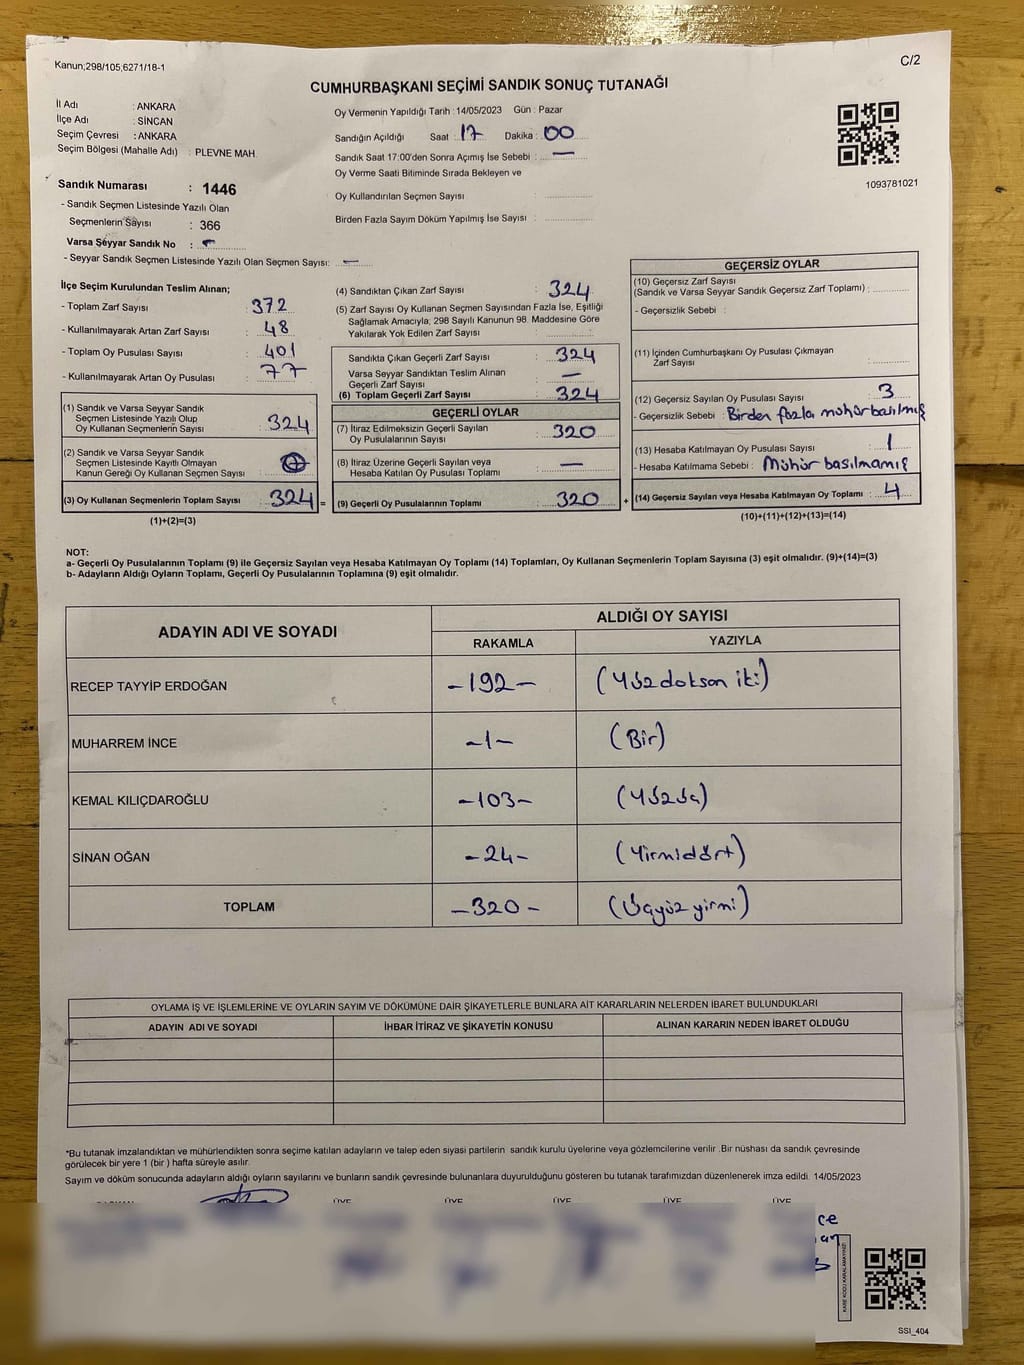 Kanun;298/105,6271/18-1
C/2
CUMHURBAŞKANI SEÇİMİ SANDIK SONUÇ TUTANAĞI
İl Adı : ANKARA
İlçe Adı : SİNCAN
Seçim Çevresi : ANKARA
Seçim Bölgesi (Mahalle Adı) : PLEVNE MAH
Sandık Numarası : 1446
- Sandık Seçmen Listesinde Yazılı Olan
Seçmenlerin Sayısı : 366
Varsa Seyyar Sandık No : -
- Seyyar Sandık Seçmen Listesinde Yazılı Olan Seçmen Sayısı: -
Oy Vermenin Yapıldığı Tarih : 14/05/2023 Gün : Pazar
Sandığın Açıldığı Saat : 17 Dakika : 00
Sandık Saat 17:00'den Sonra Açımış İse Sebebi : -
Oy Verme Saati Bitiminde Sırada Bekleyen ve
Oy Kullandırılan Seçmen Sayısı :
Birden Fazla Sayım Döküm Yapılmış İse Sayısı :
1093781021
İlçe Seçim Kurulundan Teslim Alınan;
- Toplam Zarf Sayısı : 372
- Kullanılmayarak Artan Zarf Sayısı : 48
- Toplam Oy Pusulası Sayısı : 401
- Kullanılmayarak Artan Oy Pusulası : 77
(1) Sandık ve Varsa Seyyar Sandık
Seçmen Listesinde Yazılı Olup
Oy Kullanan Seçmenlerin Sayısı : 324
(2) Sandık ve Varsa Seyyar Sandık
Seçmen Listesinde Kayıtlı Olmayan
Kanun Gereği Oy Kullanan Seçmen Sayısı :
(3) Oy Kullanan Seçmenlerin Toplam Sayısı : 324 =
(1)+(2)=(3)
(4) Sandıktan Çıkan Zarf Sayısı : 324
(5) Zarf Sayısı Oy Kullanan Seçmen Sayısından Fazla İse, Eşitliği
Sağlamak Amacıyla; 298 Sayılı Kanunun 98. Maddesine Göre
Yakılarak Yok Edilen Zarf Sayısı :
Sandıkta Çıkan Geçerli Zarf Sayısı : 324
Varsa Seyyar Sandıktan Teslim Alınan
Geçerli Zarf Sayısı : -
(6) Toplam Geçerli Zarf Sayısı : 324
GEÇERLİ OYLAR
(7) İtiraz Edilmeksizin Geçerli Sayılan
Oy Pusulalarının Sayısı : 320
(8) İtiraz Üzerine Geçerli Sayılan veya
Hesaba Katılan Oy Pusulası Toplamı : -
(9) Geçerli Oy Pusulalarının Toplamı : 320 +
GEÇERSİZ OYLAR
(10) Geçersiz Zarf Sayısı
(Sandık ve Varsa Seyyar Sandık Geçersiz Zarf Toplamı) :
- Geçersizlik Sebebi :
(11) İçinden Cumhurbaşkanı Oy Pusulası Çıkmayan
Zarf Sayısı :
(12) Geçersiz Sayılan Oy Pusulası Sayısı : 3
- Geçersizlik Sebebi : Birden fazla mühür basılmış
(13) Hesaba Katılmayan Oy Pusulası Sayısı : 1
- Hesaba Katılmama Sebebi : Mühür basılmamış
(14) Geçersiz Sayılan veya Hesaba Katılmayan Oy Toplamı : 4
(10)+(11)+(12)+(13)=(14)
NOT:
a- Geçerli Oy Pusulalarının Toplamı (9) ile Geçersiz Sayılan veya Hesaba Katılmayan Oy Toplamı (14) Toplamları, Oy Kullanan Seçmenlerin Toplam Sayısına (3) eşit olmalıdır. (9)+(14)=(3)
b- Adayların Aldığı Oyların Toplamı, Geçerli Oy Pusulalarının Toplamına (9) eşit olmalıdır.
ADAYIN ADI VE SOYADI
ALDIĞI OY SAYISI
RAKAMLA YAZIYLA
RECEP TAYYİP ERDOĞAN -192- (Yüzdoksan iki)
MUHARREM İNCE -1- (Bir)
KEMAL KILIÇDAROĞLU -103- (Yüzüç)
SİNAN OĞAN -24- (Yirmidört)
TOPLAM -320- (Üçyüz yirmi)
OYLAMA İŞ VE İŞLEMLERİNE VE OYLARIN SAYIM VE DÖKÜMÜNE DAİR ŞİKAYETLERLE BUNLARA AİT KARARLARIN NELERDEN İBARET BULUNDUKLARI
ADAYIN ADI VE SOYADI İHBAR İTİRAZ VE ŞİKAYETİN KONUSU ALINAN KARARIN NEDEN İBARET OLDUĞU
*Bu tutanak imzalandıktan ve mühürlendikten sonra seçime katılan adayların ve talep eden siyasi partilerin sandık kurulu üyelerine veya gözlemcilerine verilir .Bir nüshası da sandık çevresinde
görülecek bir yere 1 (bir ) hafta süreyle asılır.
Sayım ve döküm sonucunda adayların aldığı oyların sayılarını ve bunların sandık çevresinde bulunanlara duyurulduğunu gösteren bu tutanak tarafımızdan düzenlenerek imza edildi. 14/05/2023
ÜYE ÜYE ÜYE ÜYE ÜYE
KARE KODU KARALAMAYINIZ!
SSI_404